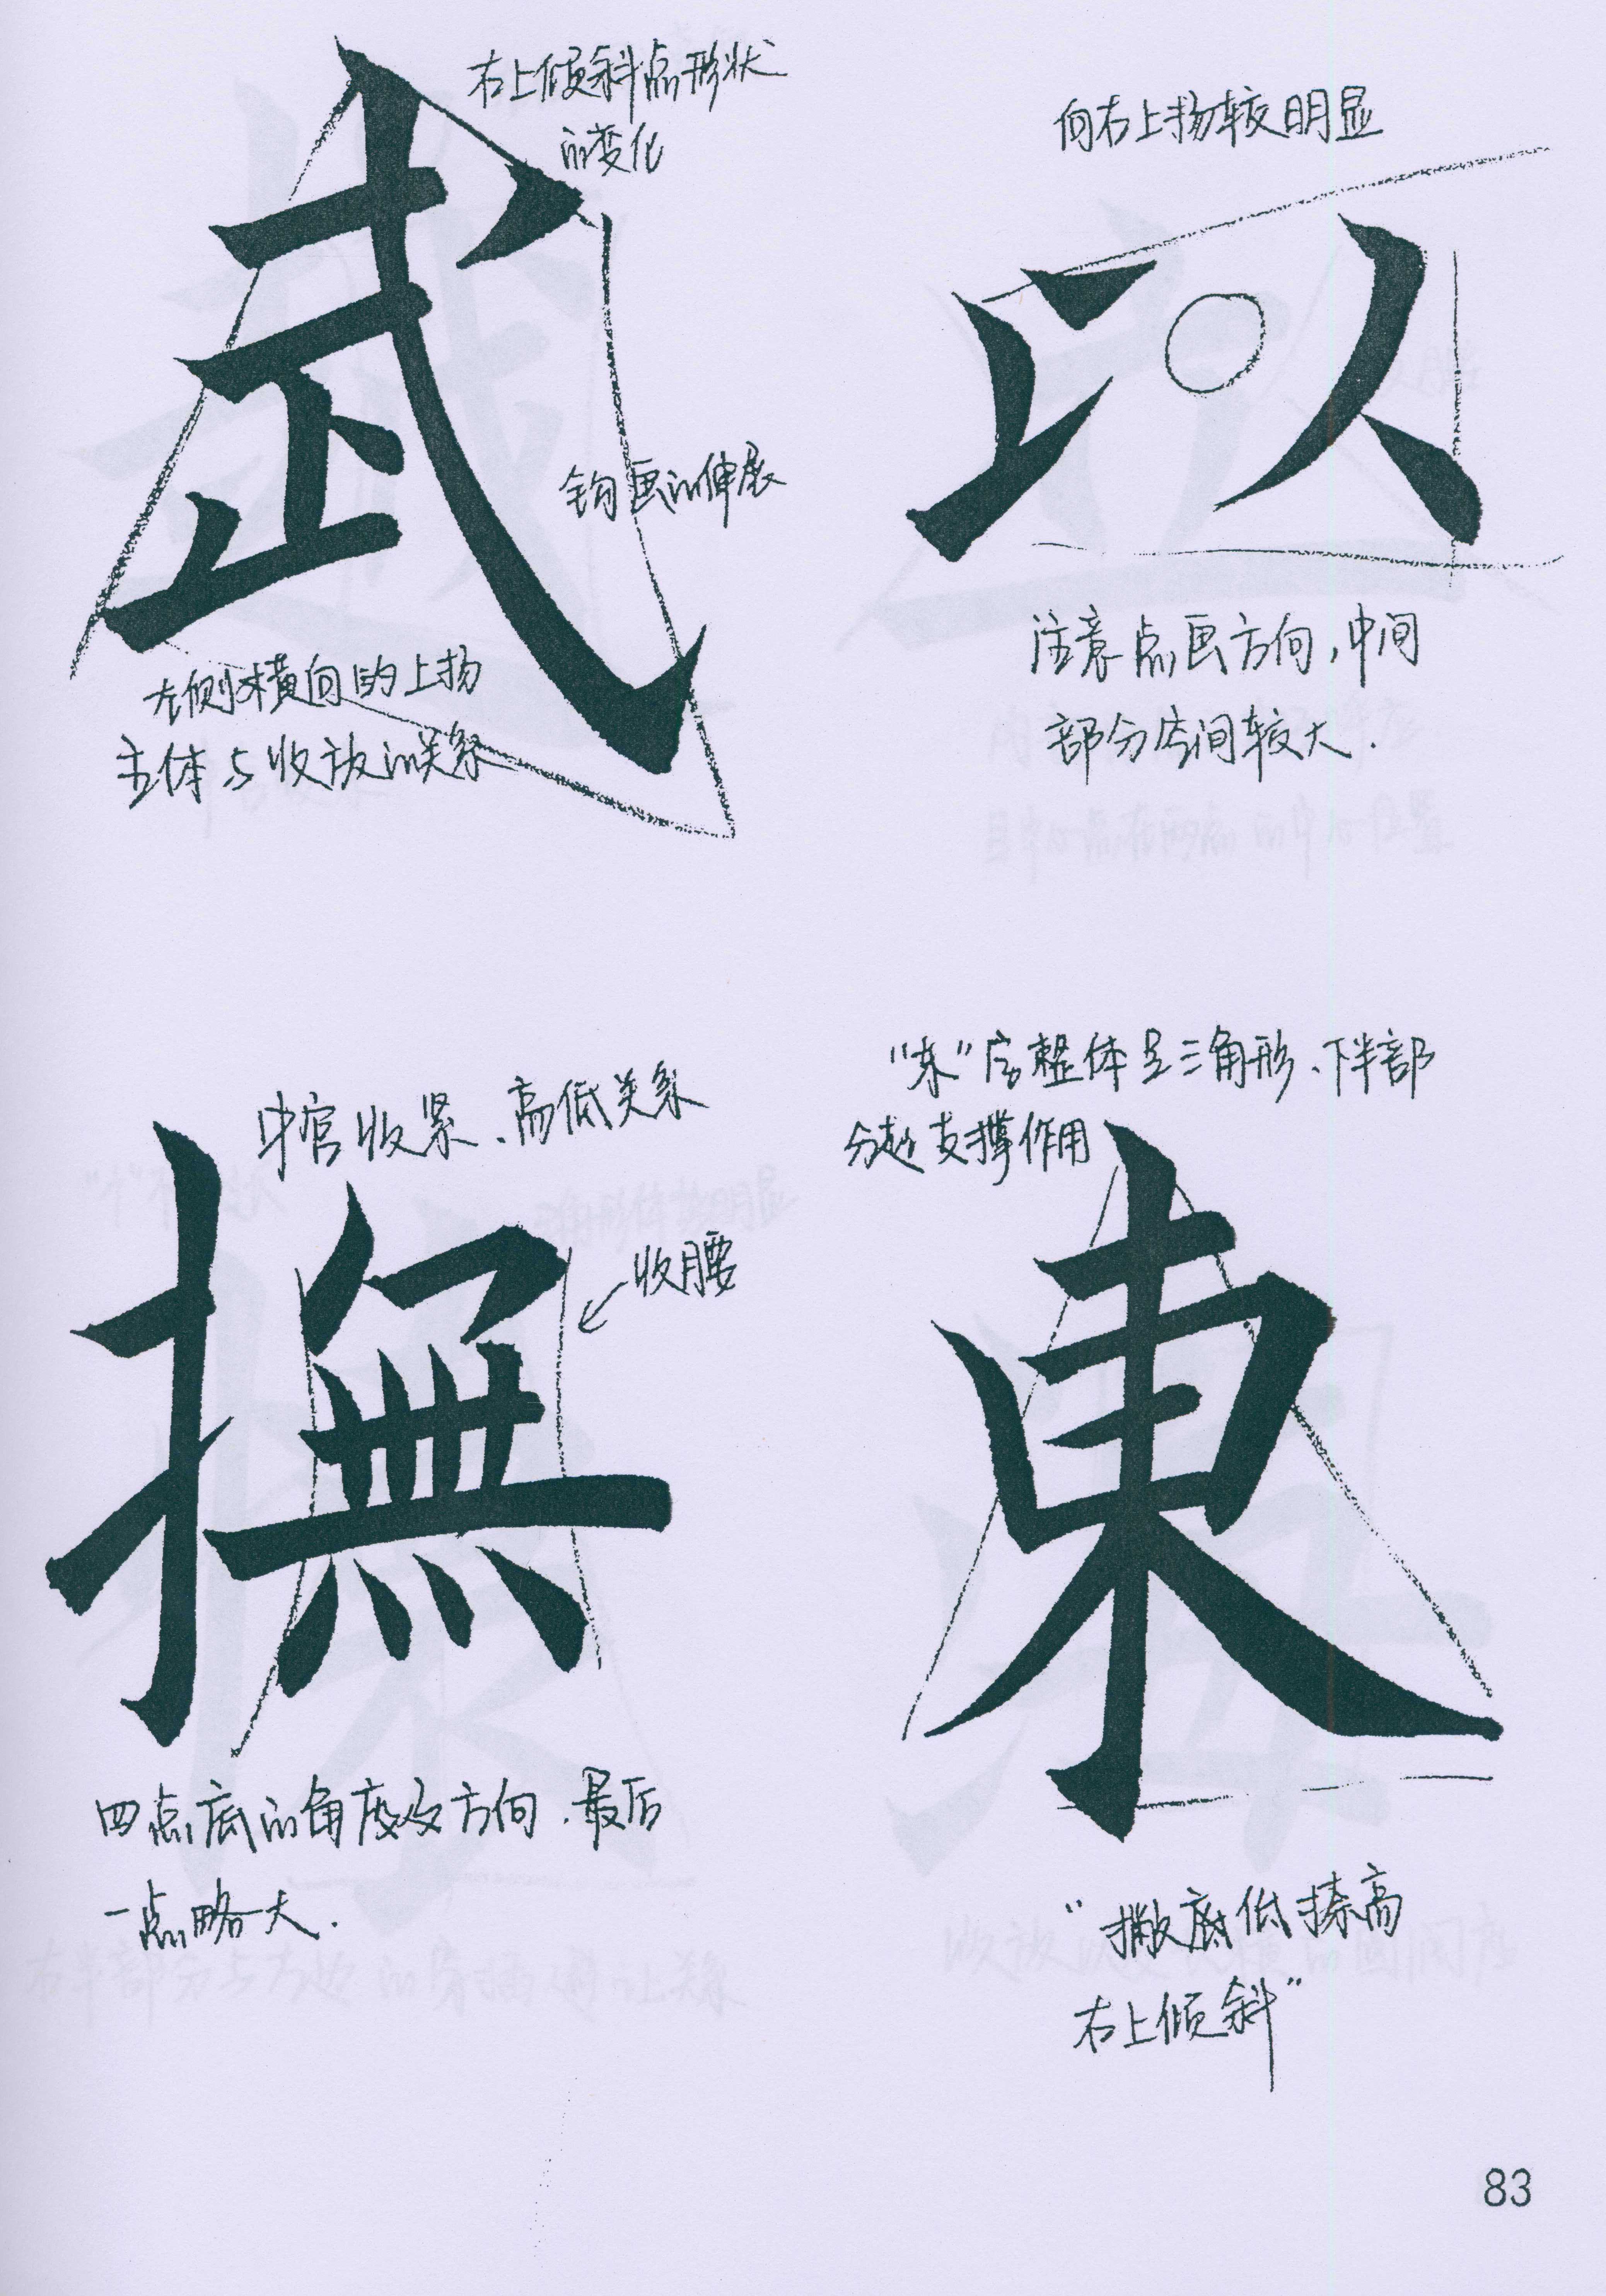 武
右上倾斜点形状
的变化
钩画的伸展
左侧横向的上扬
主体与收放的关系
向右上扬较明显
以
注意点画方向,中间
部分空间较大.
中宫收紧、高低关系
收腰
撫
四点底的角度及方向.最后
一点略大.
"東"字整体呈三角形、下半部
分起支撑作用
東
"撇底低捺高
右上倾斜"
83